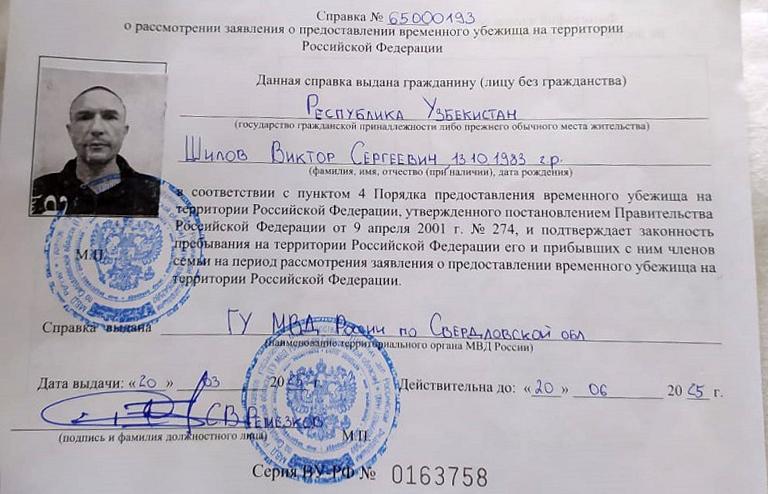 Справка № 65000193
о рассмотрении заявления о предоставлении временного убежища на территории
Российской Федерации
Данная справка выдана гражданину (лицу без гражданства)
Республика Узбекистан
(государство гражданской принадлежности либо прежнего обычного места жительства)
Шилов Виктор Сергеевич, 13.10.1983 г.р.
(фамилия, имя, отчество (при наличии), дата рождения)
в соответствии с пунктом 4 Порядка предоставления временного убежища на
территории Российской Федерации, утвержденного постановлением Правительства
Российской Федерации от 9 апреля 2001 г. № 274, и подтверждает законность
пребывания на территории Российской Федерации его и прибывших с ним членов
семьи на период рассмотрения заявления о предоставлении временного убежища на
территории Российской Федерации.
М.П.
Справка выдана ГУ МВД России по Свердловской обл
(наименование территориального органа МВД России)
Дата выдачи: «20» 03 2025 г. Действительна до: «20» 06 2025 г.
С.В. Ремезков
(подпись и фамилия должностного лица) М.П.
Серия ВУ-РФ № 0163758